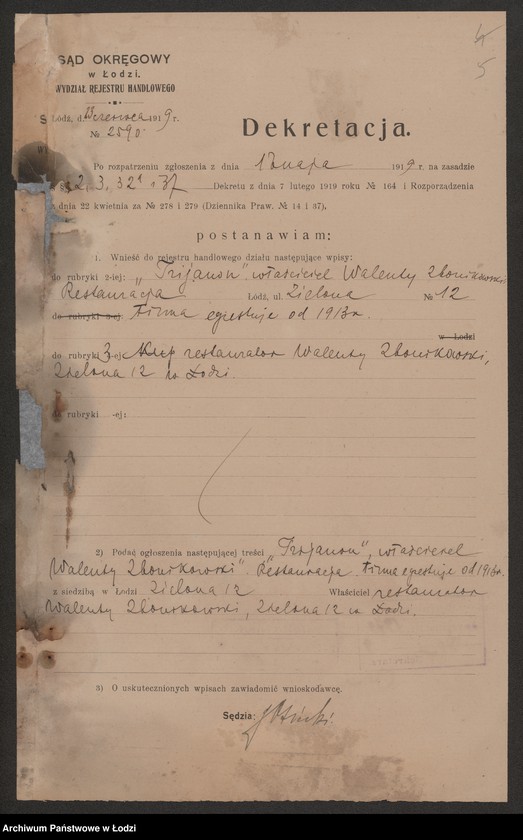 4
5
SĄD OKRĘGOWY
w Łodzi.
WYDZIAŁ REJESTRU HANDLOWEGO
Łódź, d. czerwca 1919 r.
№ 2590
Dekretacja.
Po rozpatrzeniu zgłoszenia z dnia 13 maja 1919 r. na zasadzie
§§ 2, 3, 32 i 37 Dekretu z dnia 7 lutego 1919 roku № 164 i Rozporządzenia
z dnia 22 kwietnia za № 278 i 279 (Dziennika Praw. № 14 i 37),
postanawiam:
1. Wnieść do rejestru handlowego działu następujące wpisy:
do rubryki 2-iej: „Trijanon" właściciel Walenty Zbonikowski
Restauracja Łódź, ul. Zielona № 12
do rubryki -ej: Firma egzystuje od 1913 r.
w Łodzi
do rubryki 3-ej restaurator Walenty Zbonikowski,
Zielona 12 w Łodzi.
do rubryki -ej:
2) Podać ogłoszenia następującej treści „Trijanon", właściciel
Walenty Zbonikowski". Restauracja. Firma egzystuje od 1913 r.
z siedzibą w Łodzi Zielona 12 Właściciel restaurator
Walenty Zbonikowski, Zielona 12 w Łodzi.
3) O uskutecznionych wpisach zawiadomić wnioskodawcę.
Sędzia:
Archiwum Państwowe w Łodzi